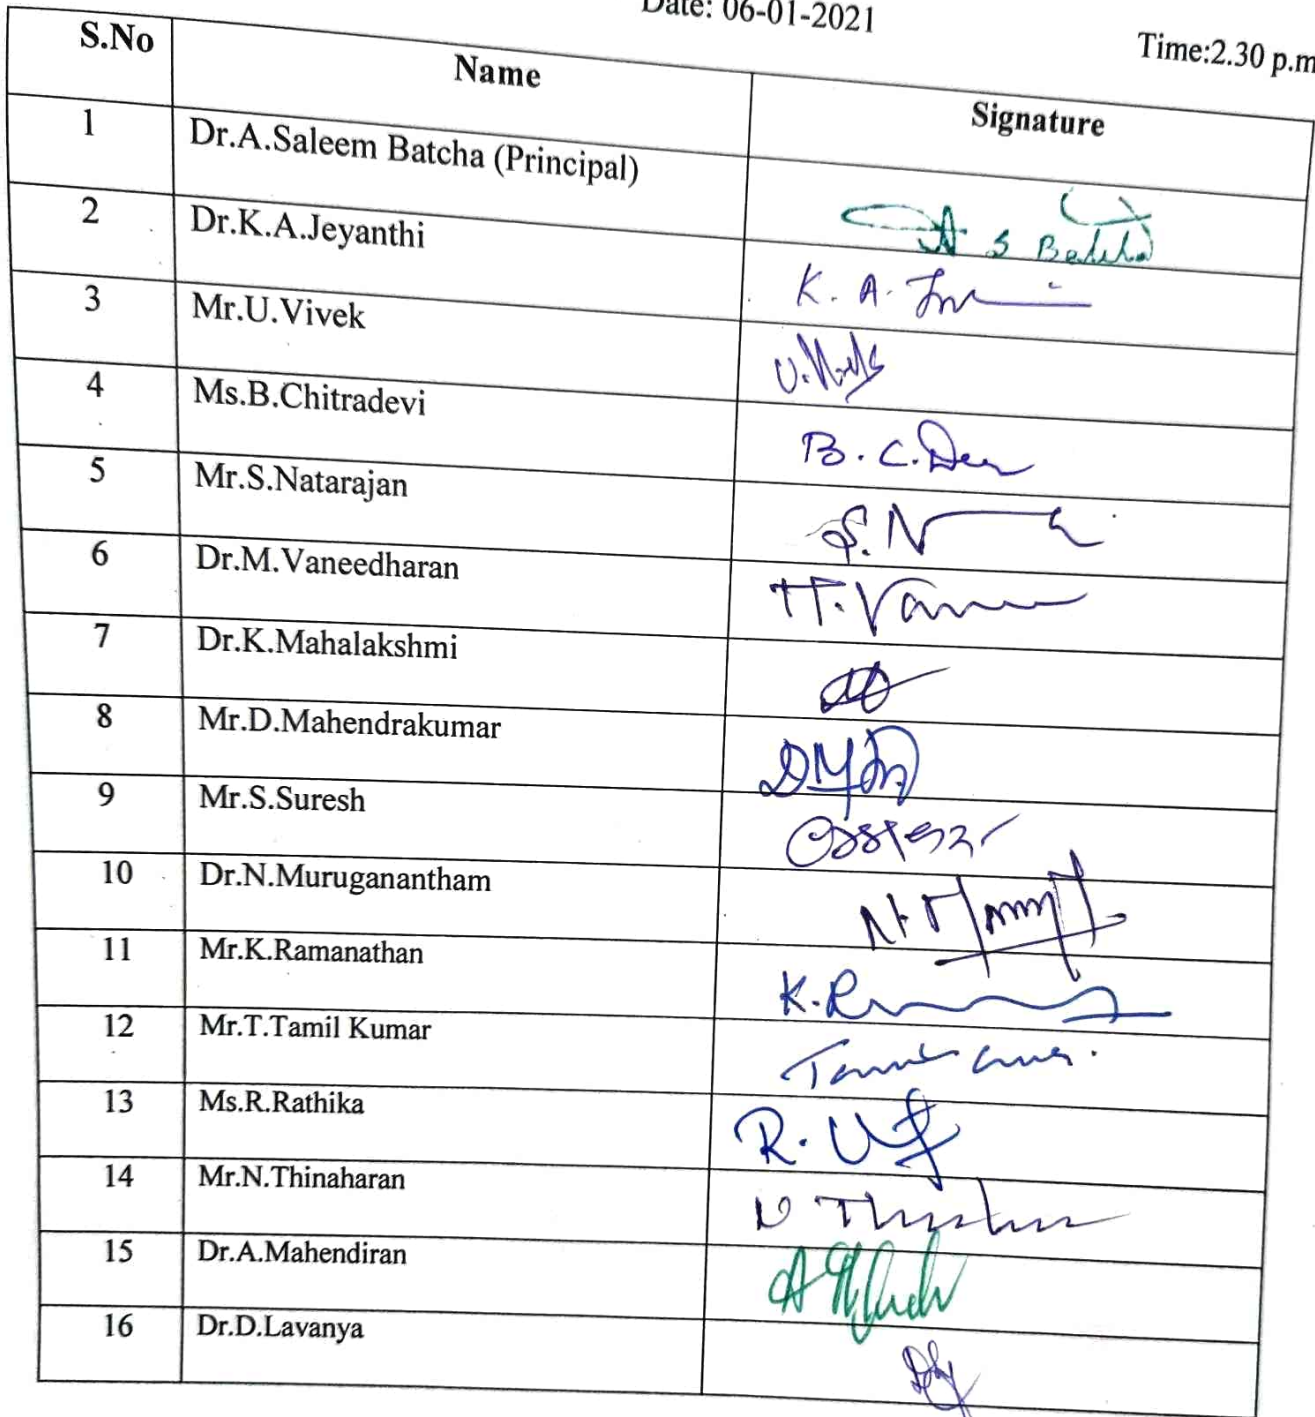 Date: 06-01-2021
Time:2.30 p.m
S.No Name Signature
1 Dr.A.Saleem Batcha (Principal) A S Batcha
2 Dr.K.A.Jeyanthi K. A.
3 Mr.U.Vivek U.
4 Ms.B.Chitradevi B. C. Dev
5 Mr.S.Natarajan S. N
6 Dr.M.Vaneedharan
7 Dr.K.Mahalakshmi
8 Mr.D.Mahendrakumar
9 Mr.S.Suresh
10 Dr.N.Muruganantham
11 Mr.K.Ramanathan K. R
12 Mr.T.Tamil Kumar
13 Ms.R.Rathika R.
14 Mr.N.Thinaharan N
15 Dr.A.Mahendiran A
16 Dr.D.Lavanya